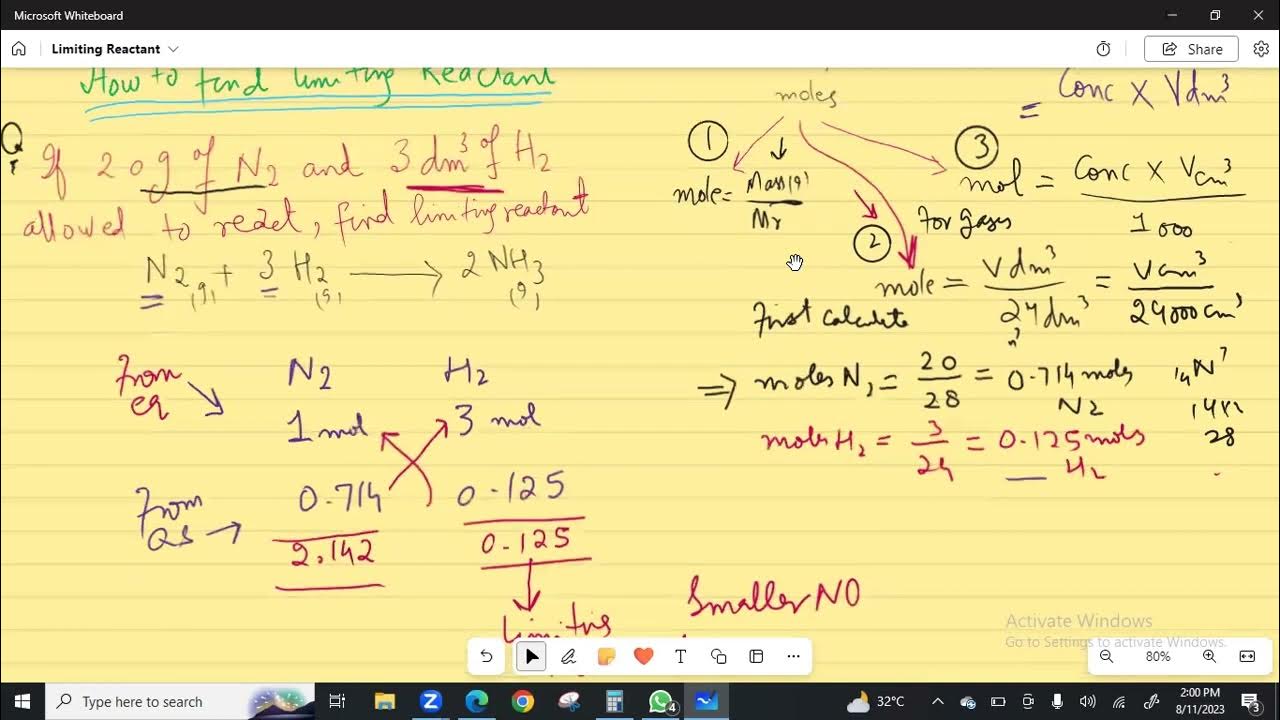 Microsoft Whiteboard
Limiting Reactant
Share
How to find limiting Reactant
Q
If 20g of N2 and 3 dm³ of H2
allowed to react, find limiting reactant
N2(g) + 3 H2(g) → 2 NH3(g)
From eq
N2 H2
1 mol 3 mol
From Qs →
0.714 0.125
2.142 0.125
Limiting
moles
= Conc X Vdm³
1
mole = Mass(g) / Mr
3
mol = Conc X Vcm³ / 1000
2
For gases
mole = Vdm³ / 24dm³ = Vcm³ / 24000cm³
First calculate
⇒ moles N2 = 20 / 28 = 0.714 moles N2
14N7
14x2
28
moles H2 = 3 / 24 = 0.125 mols H2
Smaller NO
Activate Windows
Go to Settings to activate Windows.
80%
Type here to search
4
32°C
2:00 PM
8/11/2023
3